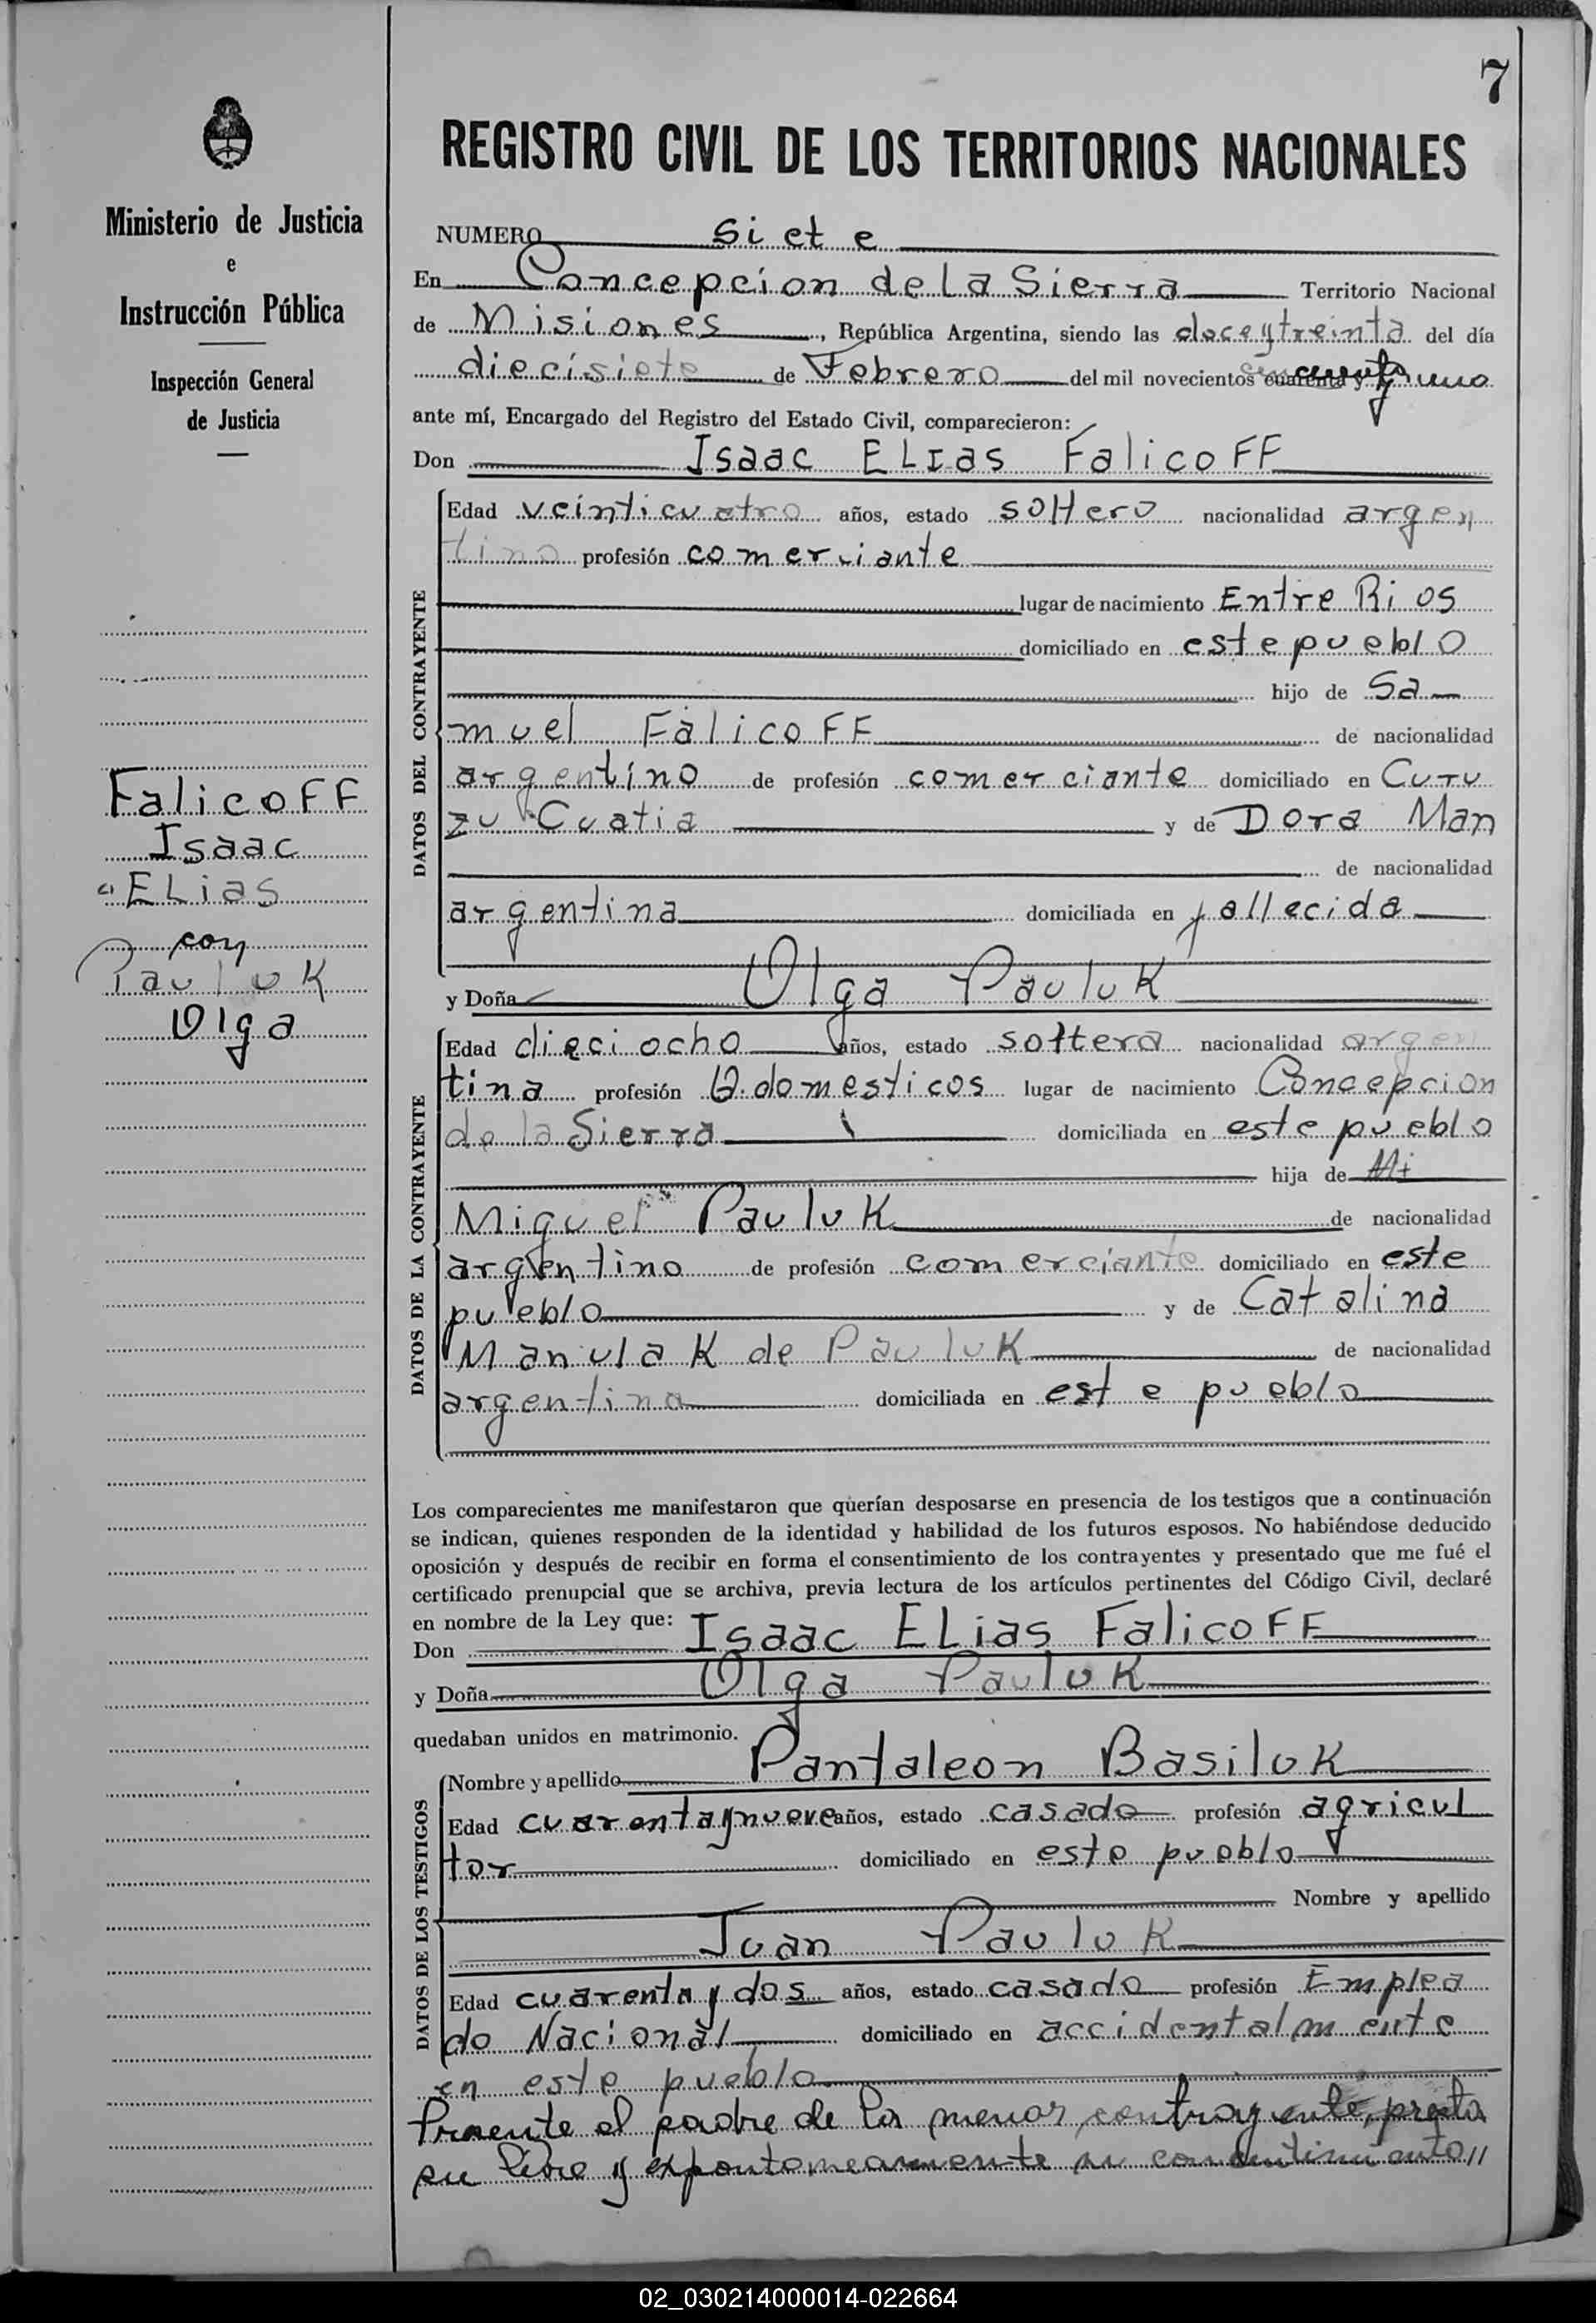 7
REGISTRO CIVIL DE LOS TERRITORIOS NACIONALES
Ministerio de Justicia
e
Instrucción Pública
Inspección General
de Justicia
Falicoff
Isaac
"Elias
con
Pauluk
Olga
NUMERO siete
En Concepcion de la Sierra Territorio Nacional
de Misiones, República Argentina, siendo las doce y treinta del día
diecisiete de Febrero del mil novecientos cuarenta y cincuenta y uno
ante mí, Encargado del Registro del Estado Civil, comparecieron:
Don Isaac Elias Falicoff
DATOS DEL CONTRAYENTE
Edad veinticuatro años, estado soltero nacionalidad argen
tino profesión comerciante
lugar de nacimiento Entre Rios
domiciliado en este pueblo
hijo de Sa
muel Falicoff de nacionalidad
argentino de profesión comerciante domiciliado en Curu
zu Cuatia y de Dora Man
de nacionalidad
argentina domiciliada en fallecida
y Doña Olga Pauluk
DATOS DE LA CONTRAYENTE
Edad dieciocho años, estado soltera nacionalidad argen
tina profesión Q. domesticos lugar de nacimiento Concepcion
de la Sierra domiciliada en este pueblo
hija de Mi
Miguel Pauluk de nacionalidad
argentino de profesión comerciante domiciliado en este
pueblo y de Catalina
Manulak de Pauluk de nacionalidad
argentina domiciliada en este pueblo
Los comparecientes me manifestaron que querían desposarse en presencia de los testigos que a continuación
se indican, quienes responden de la identidad y habilidad de los futuros esposos. No habiéndose deducido
oposición y después de recibir en forma el consentimiento de los contrayentes y presentado que me fué el
certificado prenupcial que se archiva, previa lectura de los artículos pertinentes del Código Civil, declaré
en nombre de la Ley que:
Don Isaac Elias Falicoff
y Doña Olga Pauluk
quedaban unidos en matrimonio.
DATOS DE LOS TESTIGOS
Nombre y apellido Pantaleon Basiluk
Edad cuarenta y nueve años, estado casado profesión agricul
tor domiciliado en este pueblo
Nombre y apellido
Juan Pauluk
Edad cuarenta y dos años, estado casado profesión Emplea
do Nacional domiciliado en accidentalmente
en este pueblo
Presente el padre de la menor contrayente, presta
su libre y expontaneamente su consentimiento //
02_030214000014-022664